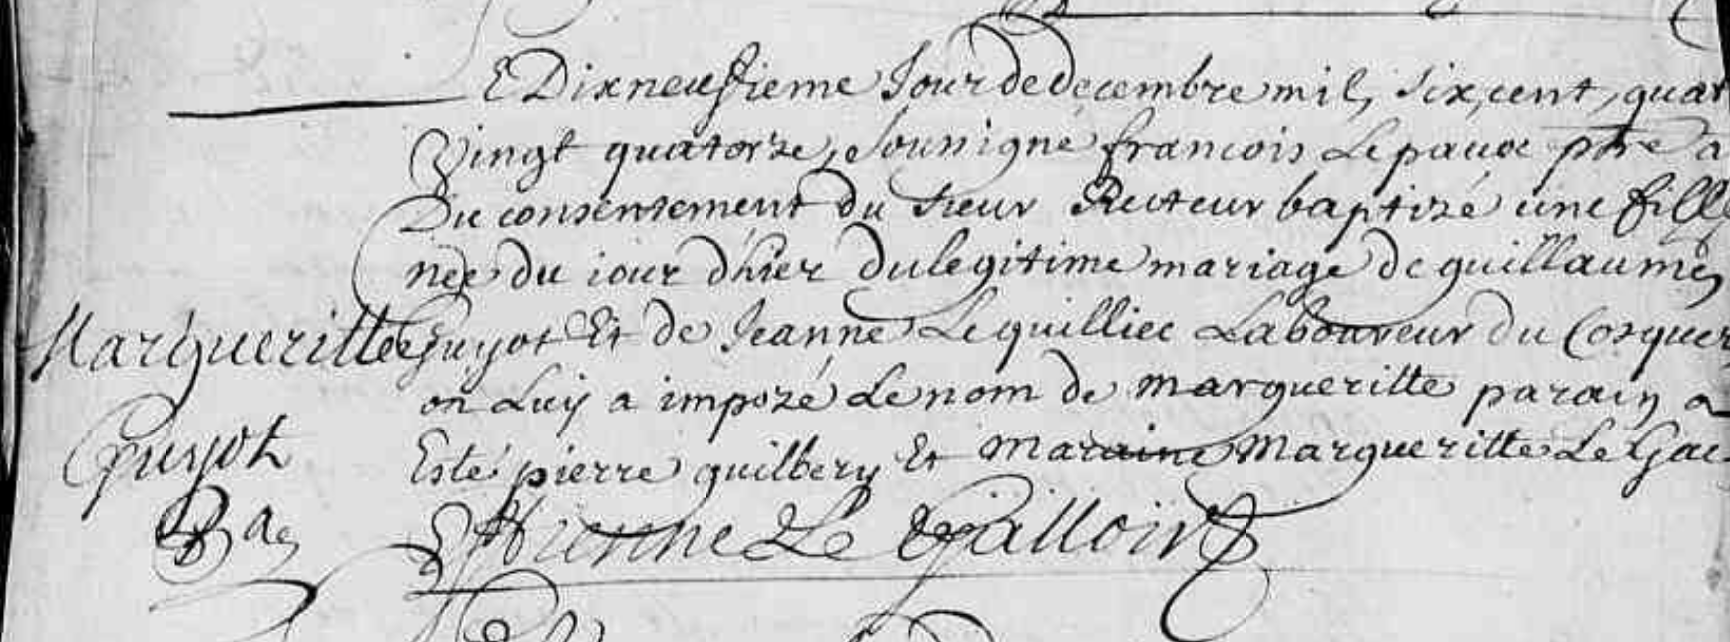 E Dixneufieme Jour de decembre mil, six, cent, quat
Vingt quatorze, je soussigne francois Le pauve ptre a
Du consentement du sieur Recteur baptizé une fille
née du iour d'hier du legitime mariage de guillaume
Margueritte Guyot Et de Jeanne Le quilliec Laboureur du Cosquer
on Luy a impozé Le nom de margueritte parain a
Guyot
Esté pierre guilbery Et maraine Margueritte Le Gac
Estienne Le